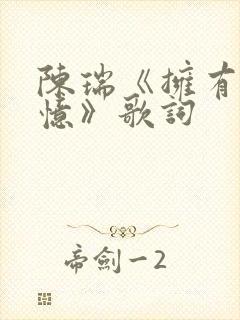 陳瑞《擁有
憶》歌詞
帝劍一2